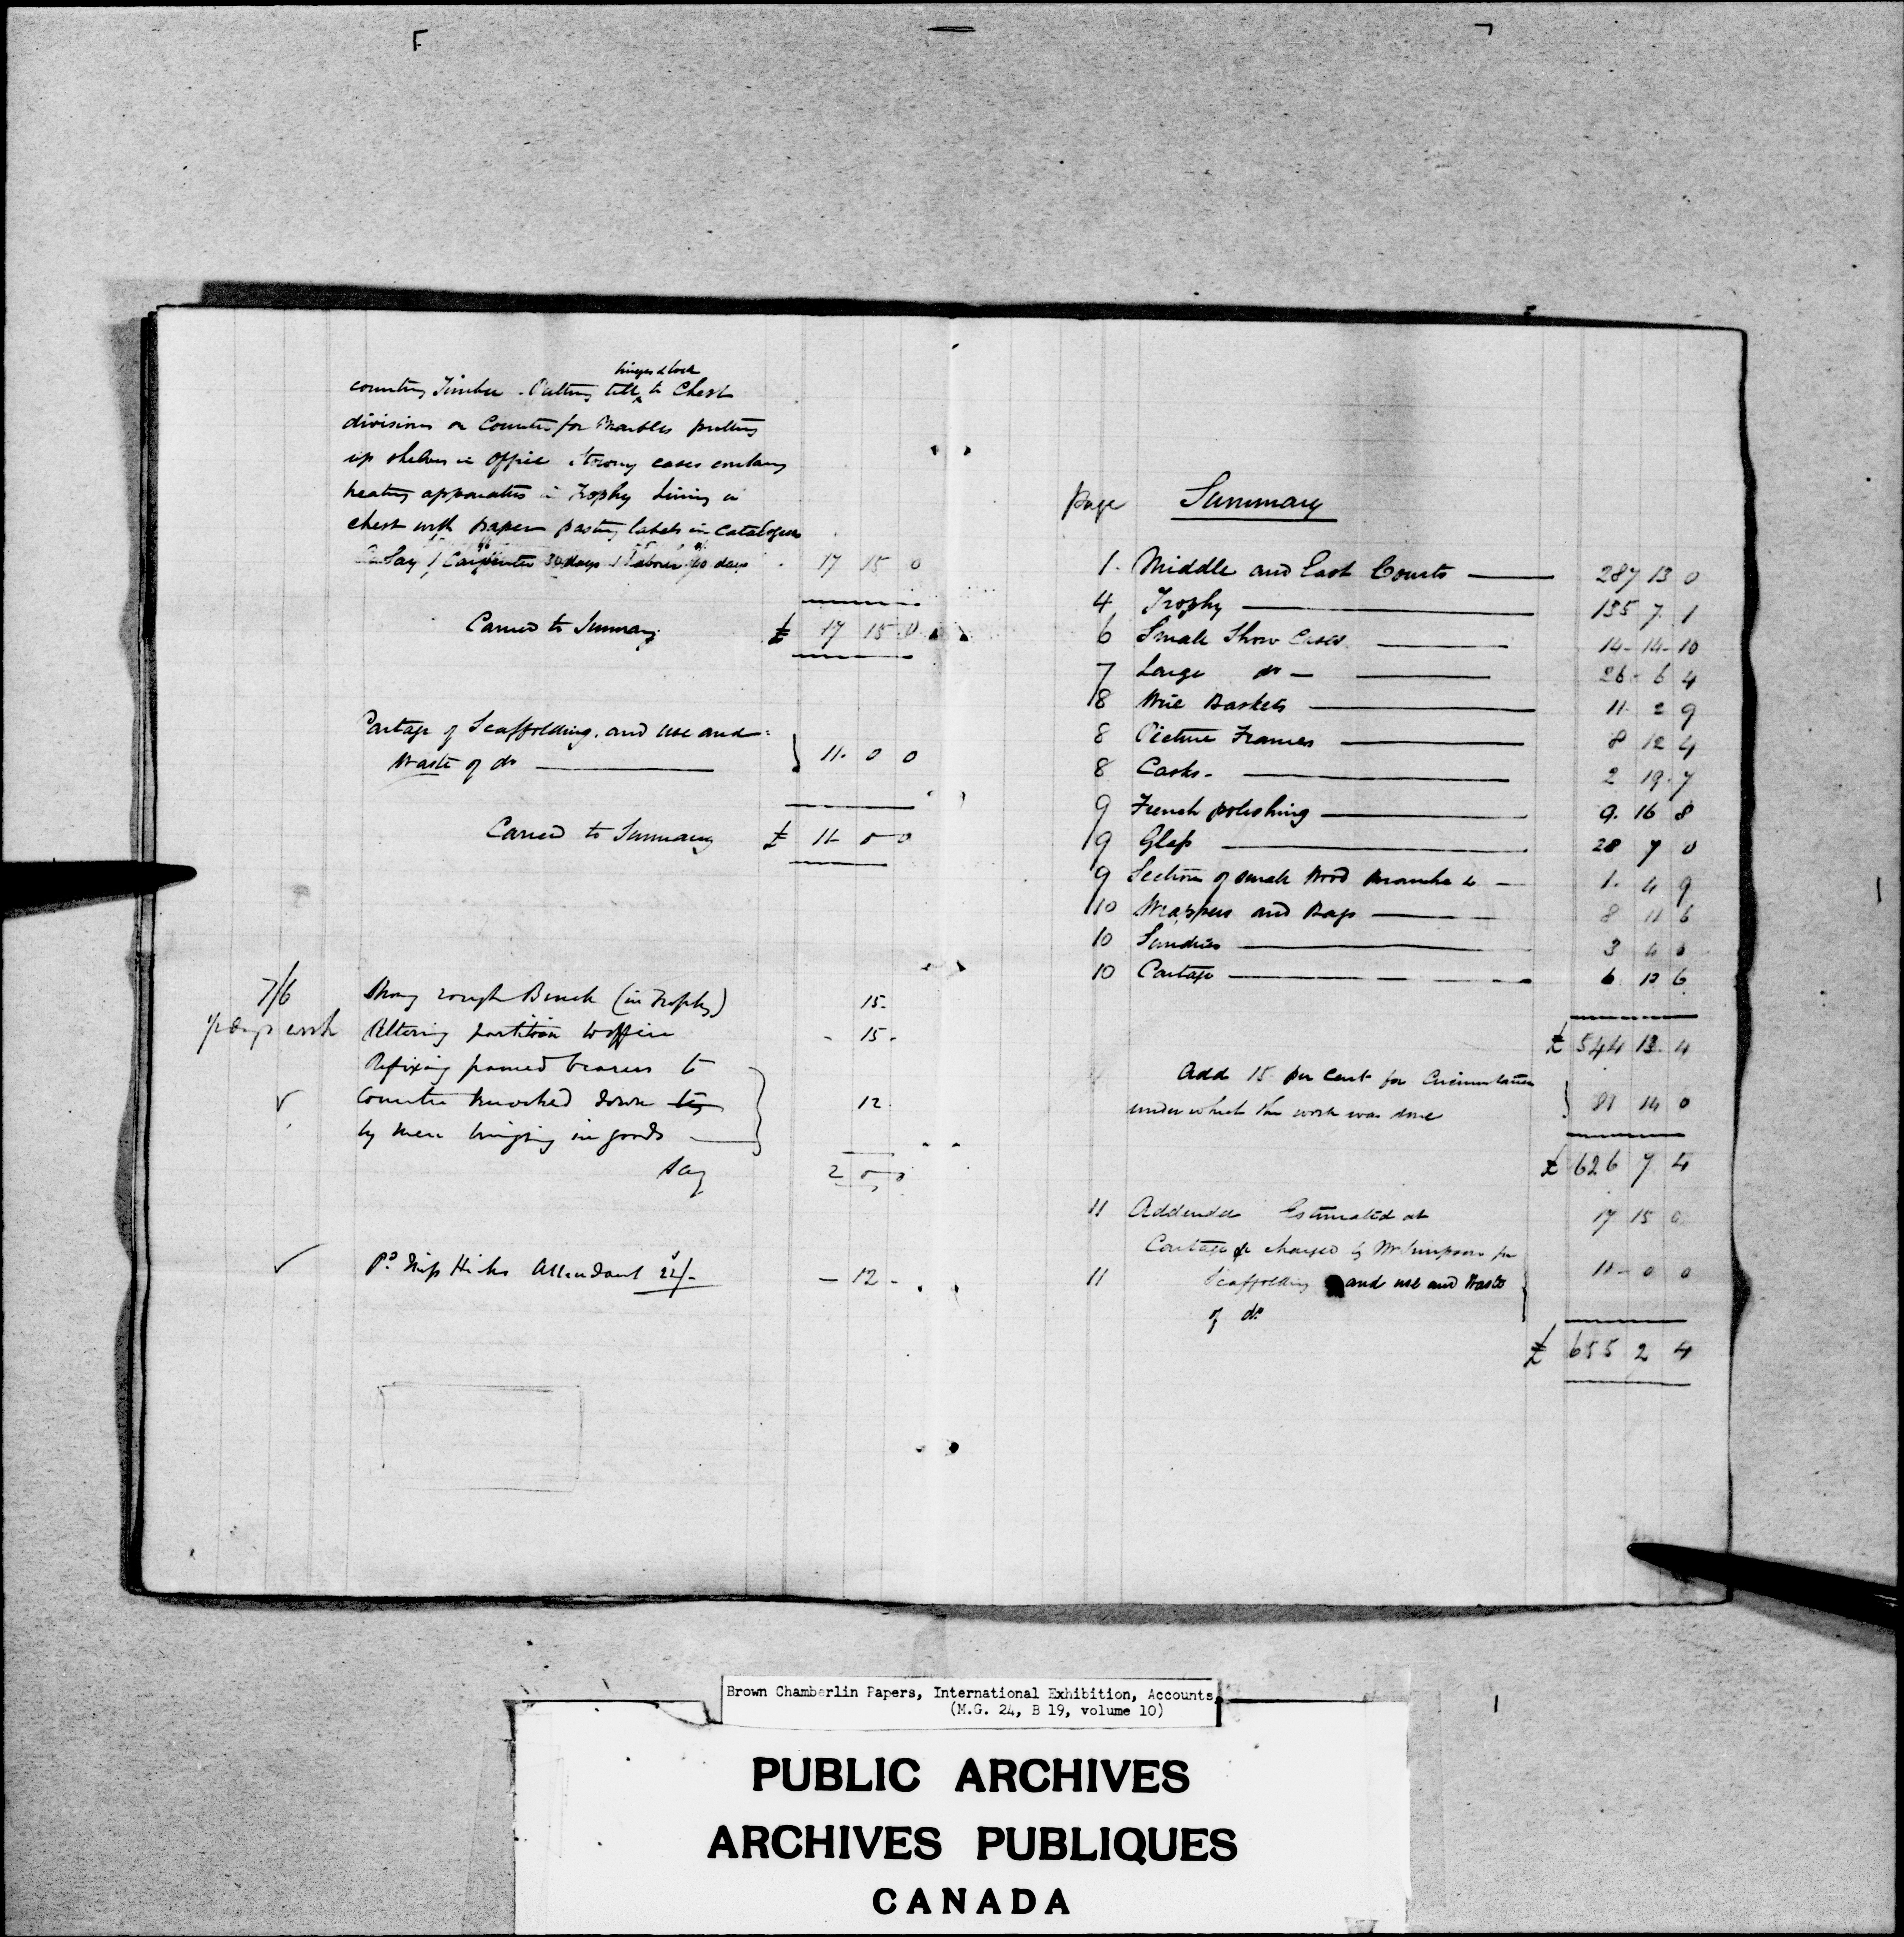 hinges & lock
counting Timber. Putting till to Chest
divisions on Counter for Marbles putting
up shelves in office strong cases containg
heating apparatus in Trophy Lining a
chest with paper pasting labels in catalogues
Say 1 Carpenter 30 days 1 Labourer 40 days 17 15 0
Carried to Summary £ 17 15 0
Cartage of Scaffolding. and use and
Waste of do 11. 0 0
Carried to Summary £ 11 - 0 - 0
7/6 Strong rough Bench (in Trophy) 15 -
days work Altering partition to office - 15 -
Refixing framed bearers to
Counter knocked down 12
by men bringing in goods
Say 2
Pd Miss Hicks Attendant 22/- - 12 -
page Summary
1. Middle and East Courts 287 13 0
4 Trophy 135 7. 1
6 Small Show Cases 14 - 14 - 10
7 Large do 26 - 6 4
8 Wire Baskets 11. 2 9
8 Picture Frames 8 12 4
8 Casks - 2 19 . 7
9 French polishing 9. 16 8
9 Glass 28 7 0
9 Sections of small Wood 1. 4 9
10 Wrappers and Bags 8 11 6
10 Sundries 3 4 0
10 Cartage 6. 13 6
£ 544 13. 4
Add 15 per cent for Circumstances
under which the work was done 81 14 0
£ 626 7. 4
11 Addenda Estimated at 17 15 0
Cartage &c charged by Mr Simpson for
11 Scaffolding and use and Waste 11 - 0 0
of do
£ 655 2 4
Brown Chamberlin Papers, International Exhibition, Accounts
(M.G. 24, B 19, volume 10)
PUBLIC ARCHIVES
ARCHIVES PUBLIQUES
CANADA